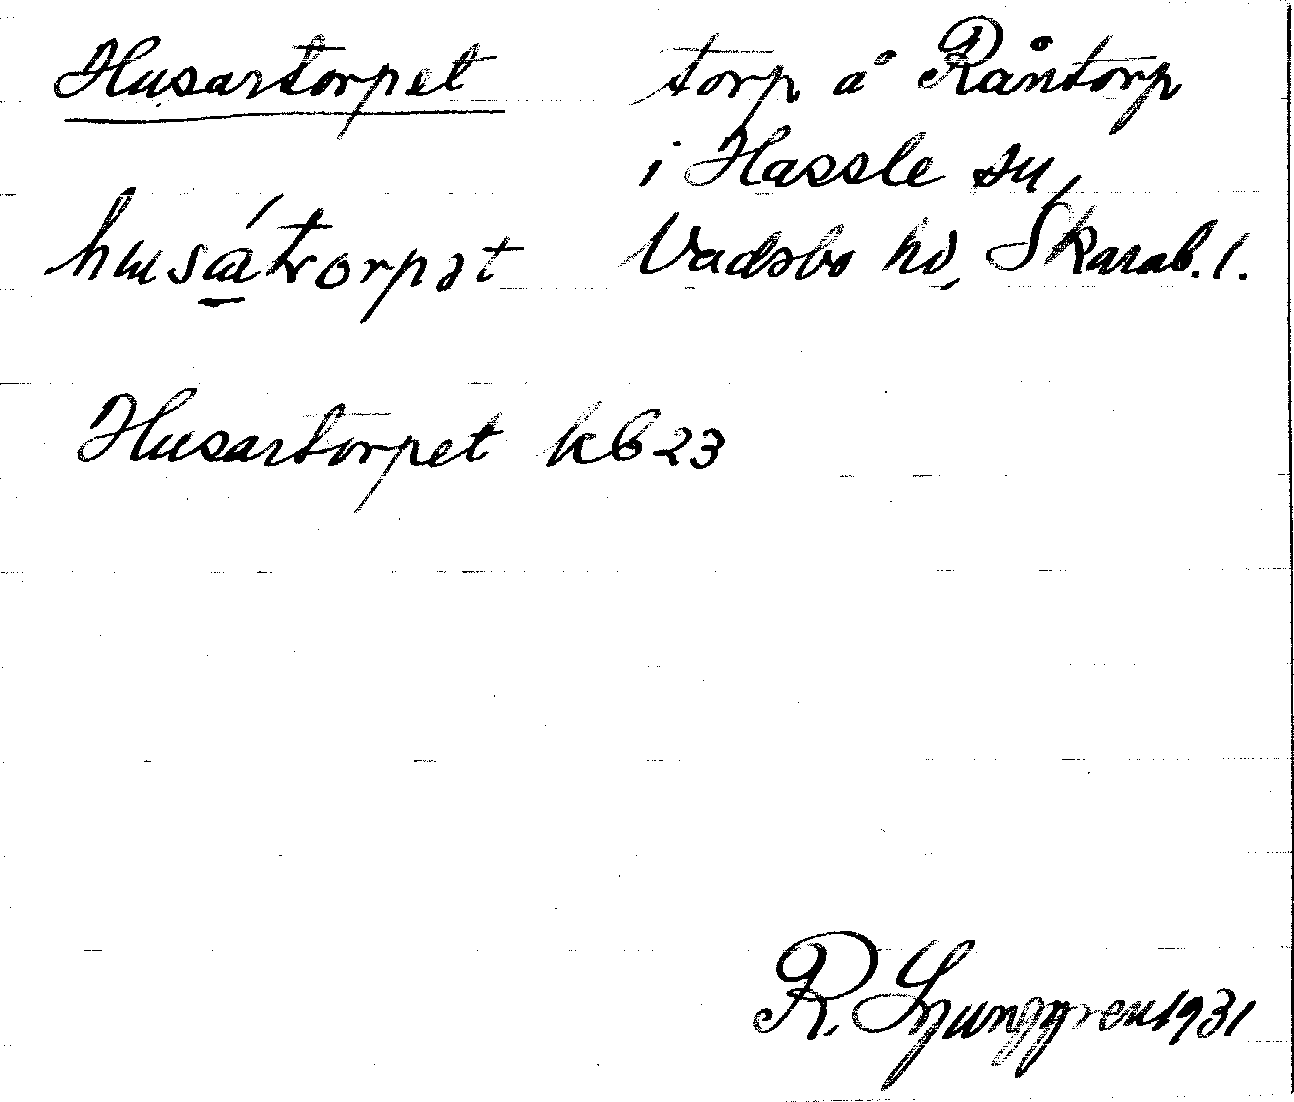 Husartorpet torp å Råntorp
i Hassle sn,
husátorpət Vadsbo hd, Skarab. l.
Husartorpet kb 23
R. Ljunggren 1931